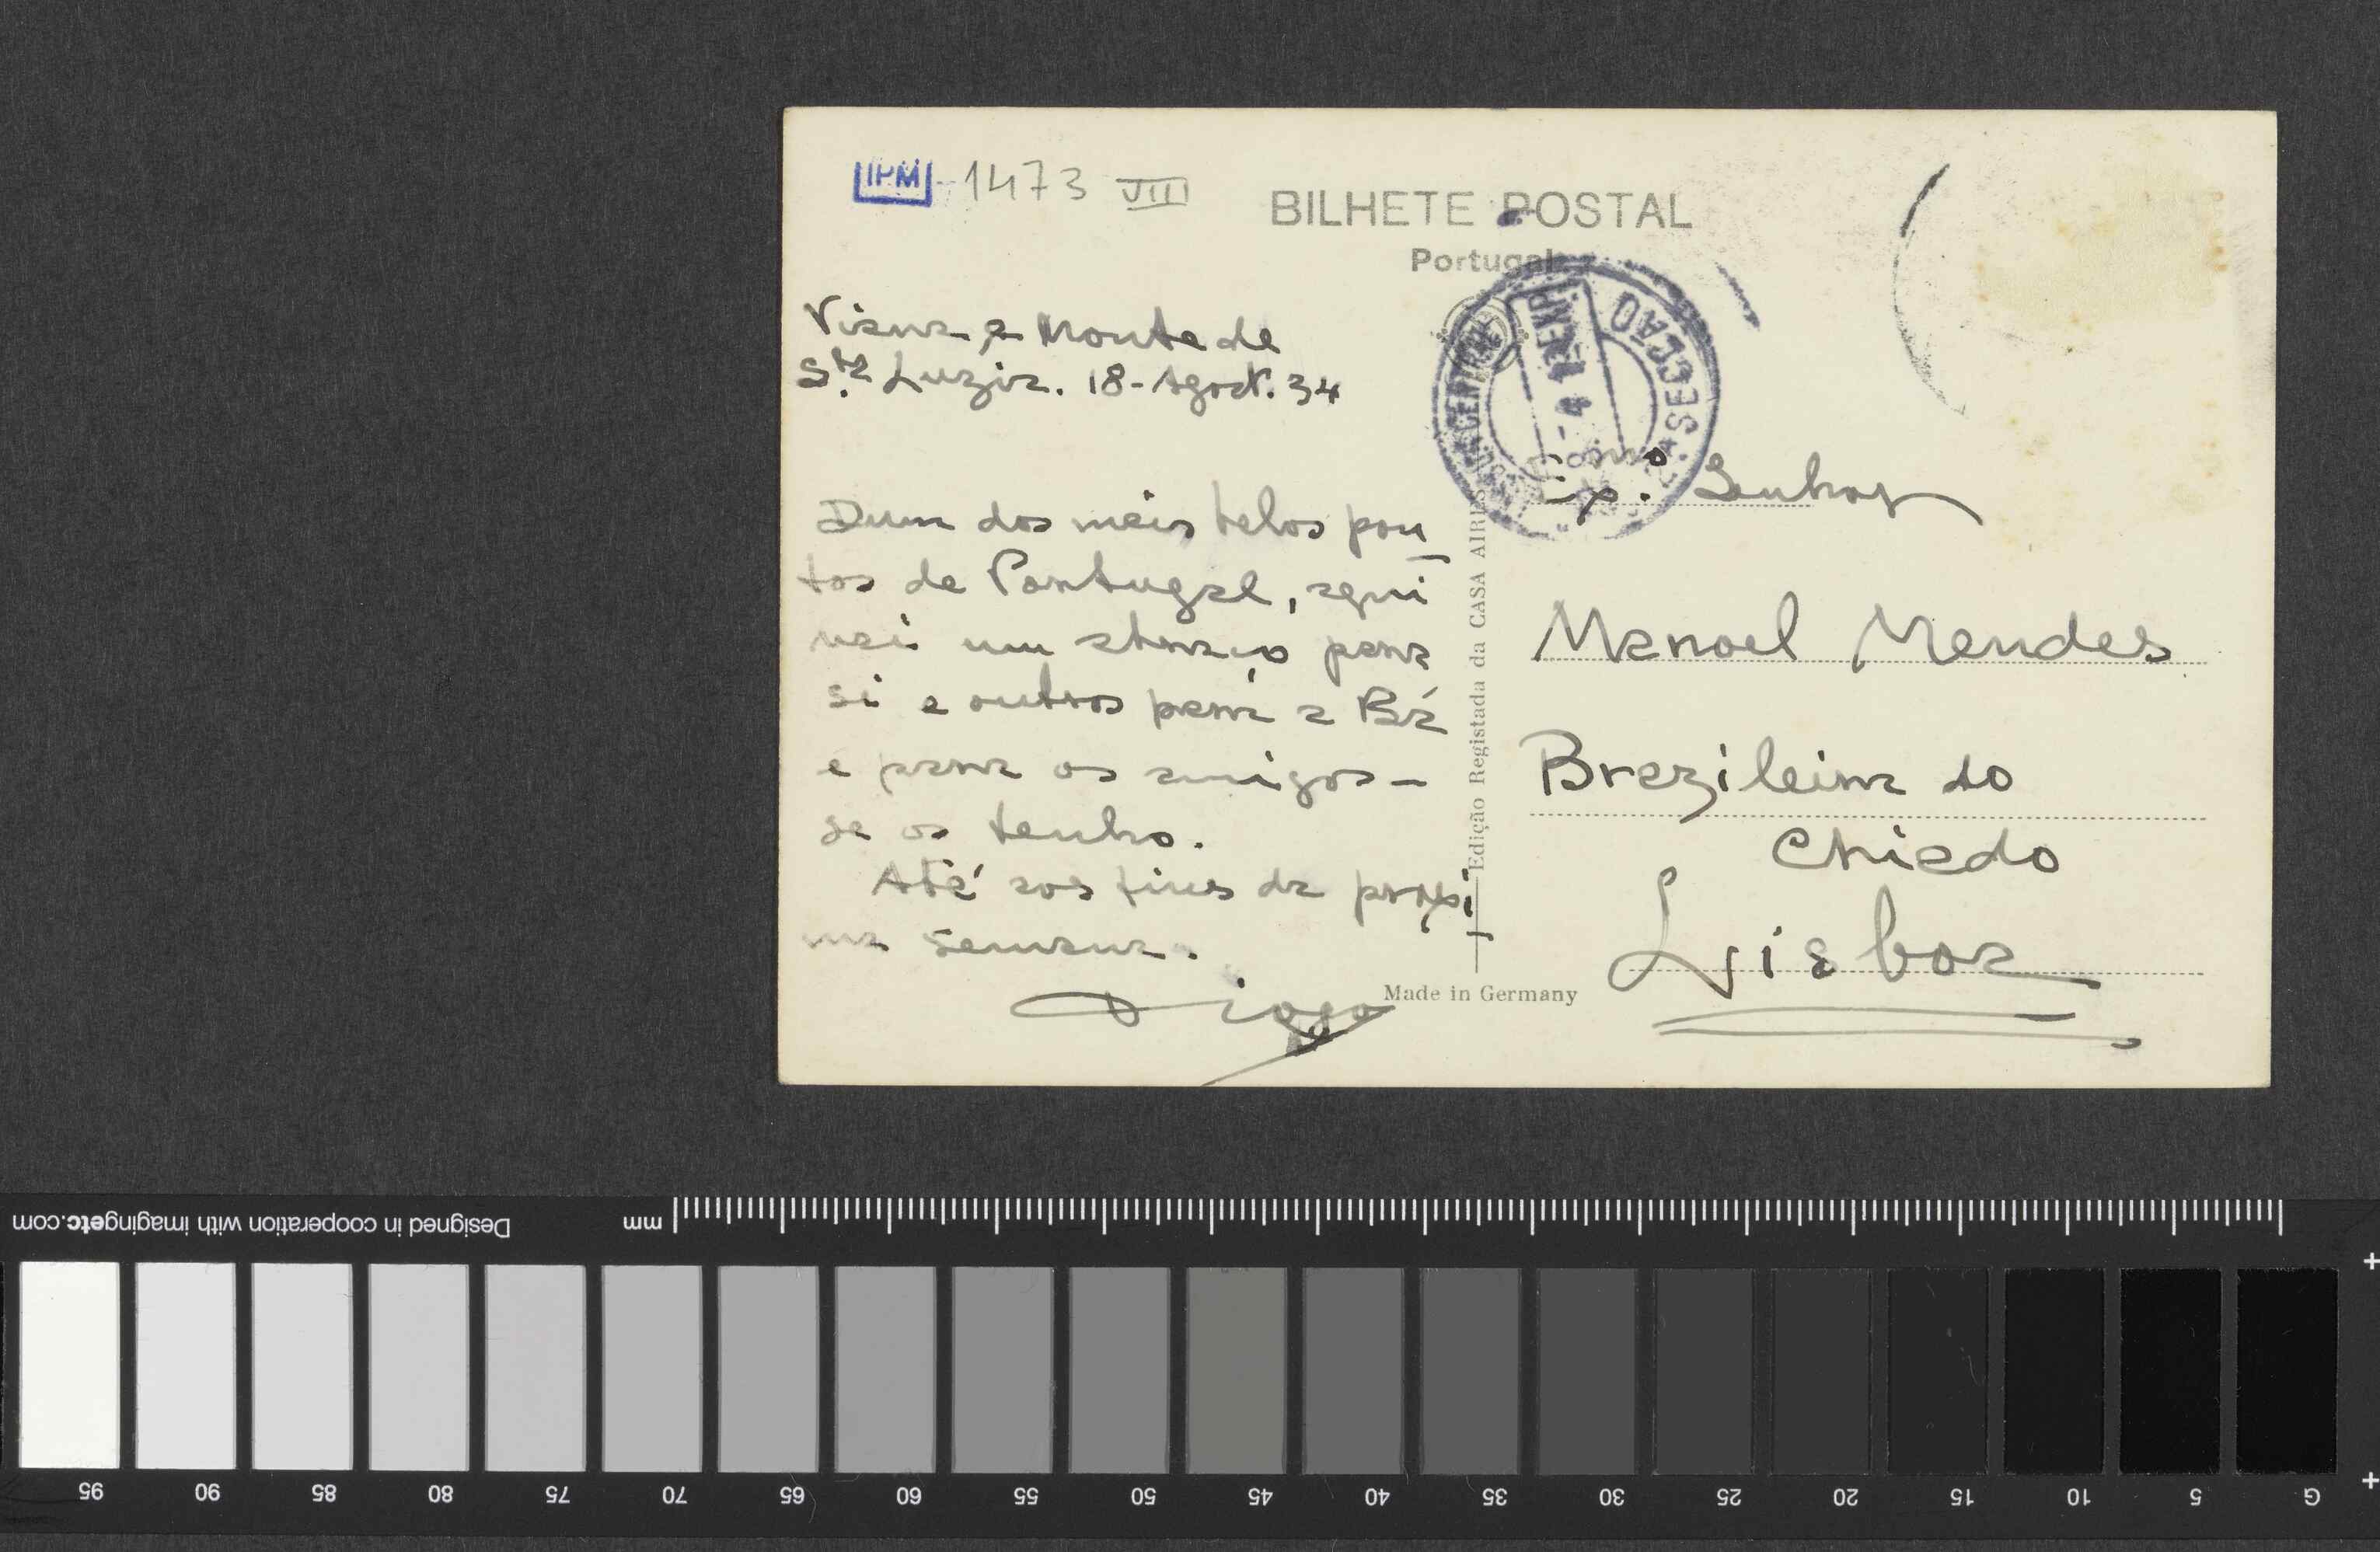 IPM - 1473 VII
BILHETE POSTAL
Portugal
Viana e Monte de
Sta Luzia. 18-Agost. 34
Dum dos mais belos pon-
tos de Portugal, aqui
vai um abraço para
si e outros para a Bá
e para os amigos -
se os tenho.
Até aos fins da proxi-
ma semana.
Diogo
Edição Registada da CASA AIRES
Made in Germany
CENTRAL
2.A SECÇÃO
Exmo. Senhor
Manoel Mendes
Brazileira do
Chiado
Lisboa
Designed in cooperation with imagingetc.com
mm
95 90 85 80 75 70 65 60 55 50 45 40 35 30 25 20 15 10 5 G